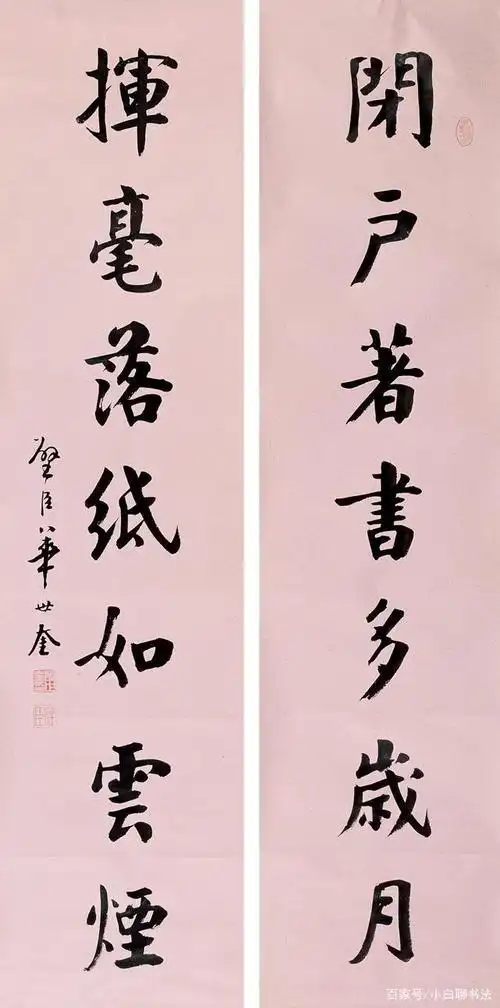 閉戶著書多歲月
揮毫落紙如雲煙
璧臣華世奎
百家号/小白聊书法